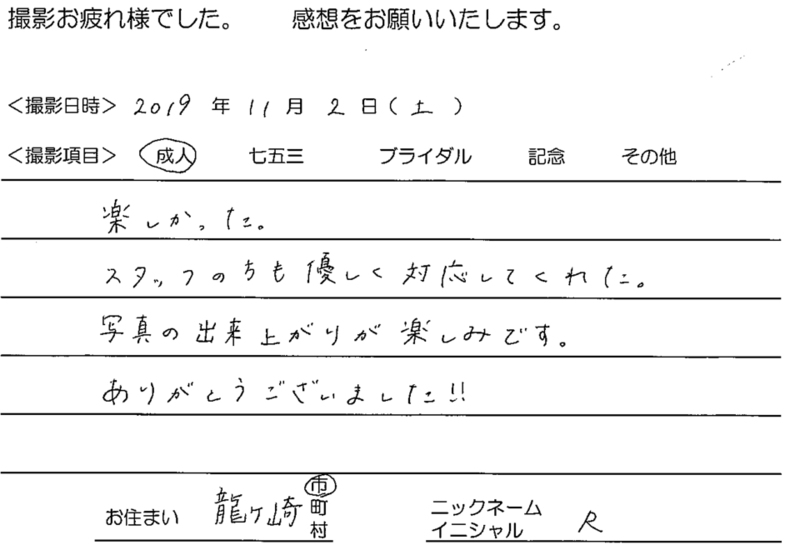 撮影お疲れ様でした。 感想をお願いいたします。
<撮影日時> 2019 年 11 月 2 日(土)
<撮影項目> 成人 七五三 ブライダル 記念 その他
楽しかった。
スタッフのちも優しく対応してくれた。
写真の出来上がりが楽しみです。
ありがとうございました!!
お住まい 龍ケ崎 市町村 ニックネーム イニシャル R